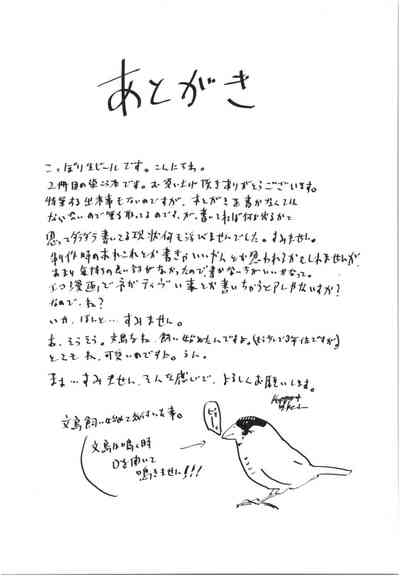 あとがき
こっぽり生ビールです。こんにちは。
2冊目の単行本です。お買い上げ頂きありがとうございます。
特筆する出来事もないのですが、あとがきを書かなくては
ならないので筆を取ってるのですが、書いてれば何か出るかと
思ってダラダラ書いてる現状何も浮びませんでした。すみません。
制作時のあれこれとか書きゃいいやんとか思われるかもしれませんが、
あまり気持の良い話がなかったので書かない方がいいかなって。
エロ漫画でネガティヴい事とか書いちゃうとアレやないすか?
なので、ね?
いや、ほんと…すみません。
あ、そうそう。文鳥をね、飼い始めたんですよ。(もう少しで3年位ですが)
とても、ね、可愛いのですわ。うん。
まぁ…すみません、そんな感じで、よろしくお願いします。
文鳥飼い始めて気付いた事。
文鳥は鳴く時
口を開いて
鳴きません!!!
ピー。